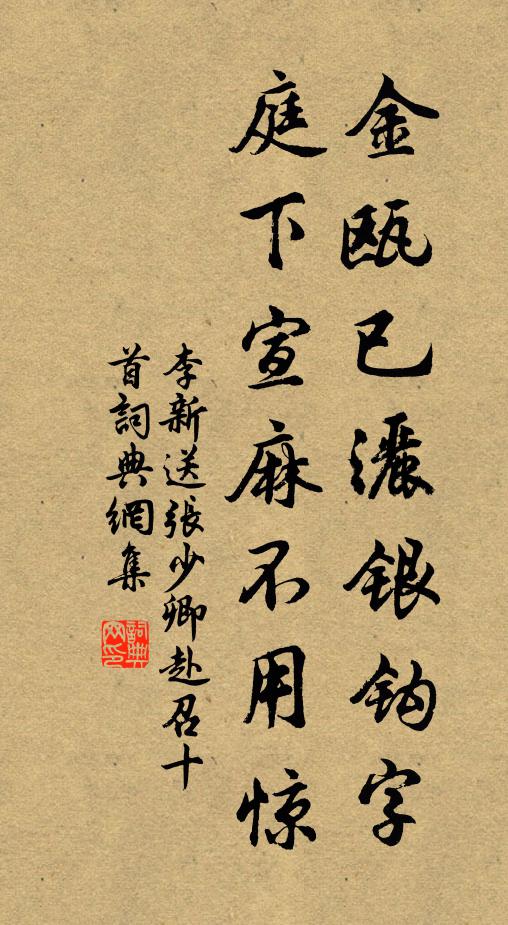 金瓯已灑银钩字
庭下宣麻不用惊
李新送張少卿赴召十
首詞典網集
詞典网印